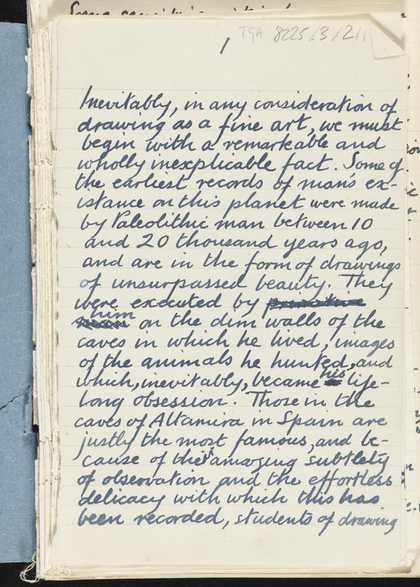 1
TGA 8225/3/2/1
Inevitably, in any consideration of
drawing as a fine art, we must
begin with a remarkable and
wholly inexplicable fact. Some of
the earliest records of man's ex-
istance on this planet were made
by Paleolithic man between 10
and 20 thousand years ago,
and are in the form of drawings
of unsurpassed beauty. They
were executed by primative
man him on the dim walls of the
caves in which he lived, images
of the animals he hunted, and
which, inevitably, became his life-
long obsession. Those in the
caves of Altamira in Spain are
justly the most famous, and be-
cause of the amazing subtlety
of observation and the effortless
delicacy with which this has
been recorded, students of drawing